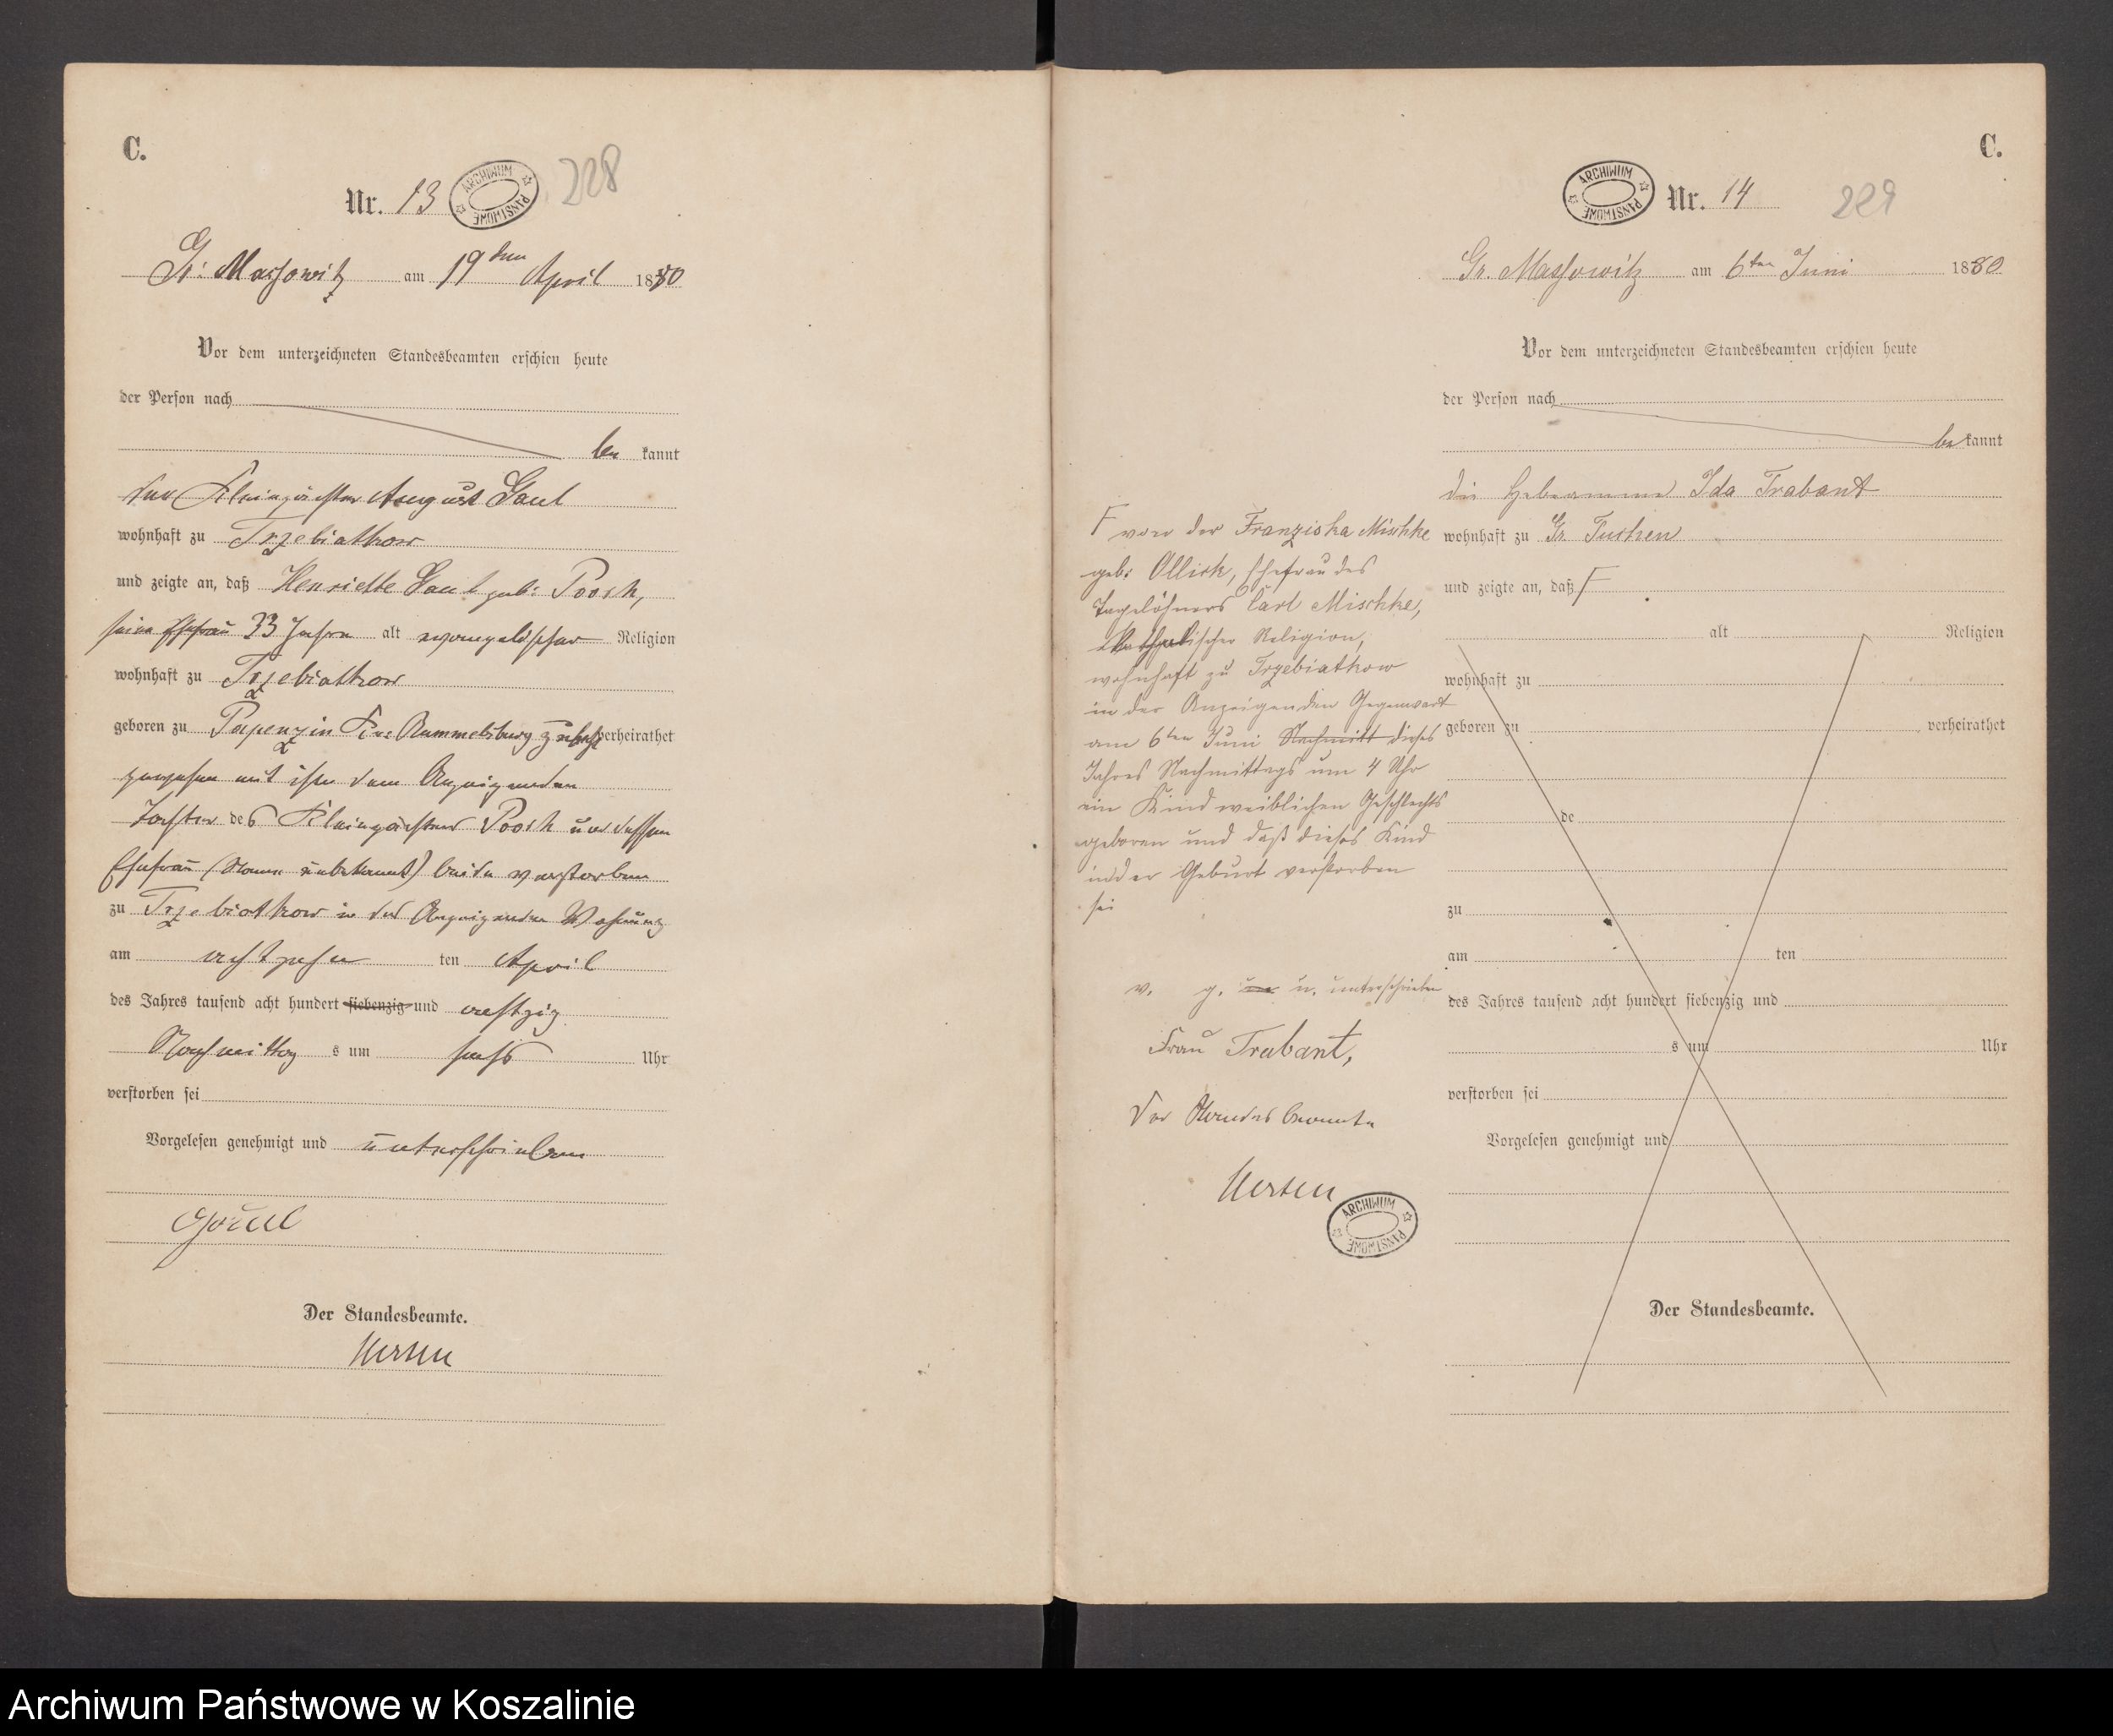 C.
Nr. 13
ARCHIWUM PAŃSTWOWE
228
Gr. Massowitz am 19 ten April 1880
Vor dem unterzeichneten Standesbeamten erschien heute
der Person nach
be kannt
der Kleinpächter August Gaul
wohnhaft zu Trzebiatkow
und zeigte an, daß Henriette Gaul geb: Poosk,
seine Ehefrau 33 Jahre alt evangelischer Religion
wohnhaft zu Trzebiatkow
geboren zu Papenzin Rummelsburg verheirathet
gewesen mit ihm dem Anzeigenden
Tochter des Kleinpächters Poosk und dessen
Ehefrau (Name unbekannt) beide verstorben
zu Trzebiatkow in des Anzeigenden Wohnung
am achtzehn ten April
des Jahres tausend acht hundert siebenzig und achtzig
Nachmittag s um sechs Uhr
verstorben sei
Vorgelesen genehmigt und unterschrieben
Gaul
Der Standesbeamte.
C.
ARCHIWUM PAŃSTWOWE
Nr. 14
229
Gr. Massowitz am 6ten Juni 1880
Vor dem unterzeichneten Standesbeamten erschien heute
der Person nach
be kannt
die Hebeamme Ida Trabant
wohnhaft zu Gr. Tuchen
und zeigte an, daß F
alt Religion
wohnhaft zu
geboren zu verheirathet
de
zu
am ten
des Jahres tausend acht hundert siebenzig und
s um Uhr
verstorben sei
Vorgelesen genehmigt und
Der Standesbeamte.
F von der Franziska Mischke
geb: Ollick, Ehefrau des
Tagelöhners Carl Mischke,
katholischer Religion,
wohnhaft zu Trzebiatkow
in der Anzeigenden Gegenwart
am 6ten Juni Nachmitt dieses
Jahres Nachmittags um 4 Uhr
ein Kind weiblichen Geschlechts
geboren und daß dieses Kind
in der Geburt verstorben
sei
v. g. u. unterschrieben
Frau Trabant,
Der Standesbeamte
ARCHIWUM PAŃSTWOWE
Archiwum Państwowe w Koszalinie